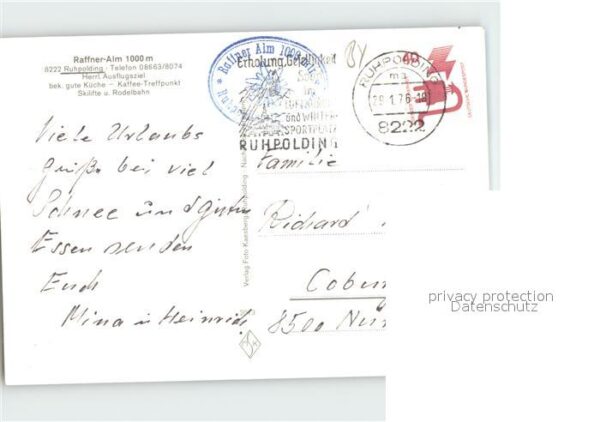 Raffner-Alm 1000 m
8222 Ruhpolding · Telefon 08663/8074
Herrl. Ausflugsziel
bek. gute Küche – Kaffee-Treffpunkt
Skilifte u. Rodelbahn
Viele Urlaubs
Grüße bei viel
Schnee und guten
Essen senden
Euch
Mina u Heinrich
Raffner Alm 1000
Erholung, Geselligkeit
und WINTER
SPORTPLATZ
RUHPOLDING
BY
RUHPOLDING
29.1.76-18
8222
40
Verlag Foto Kaesberg, Ruhpolding
Familie
Richard
Cobu
8500 Nür
privacy protection
Datenschutz